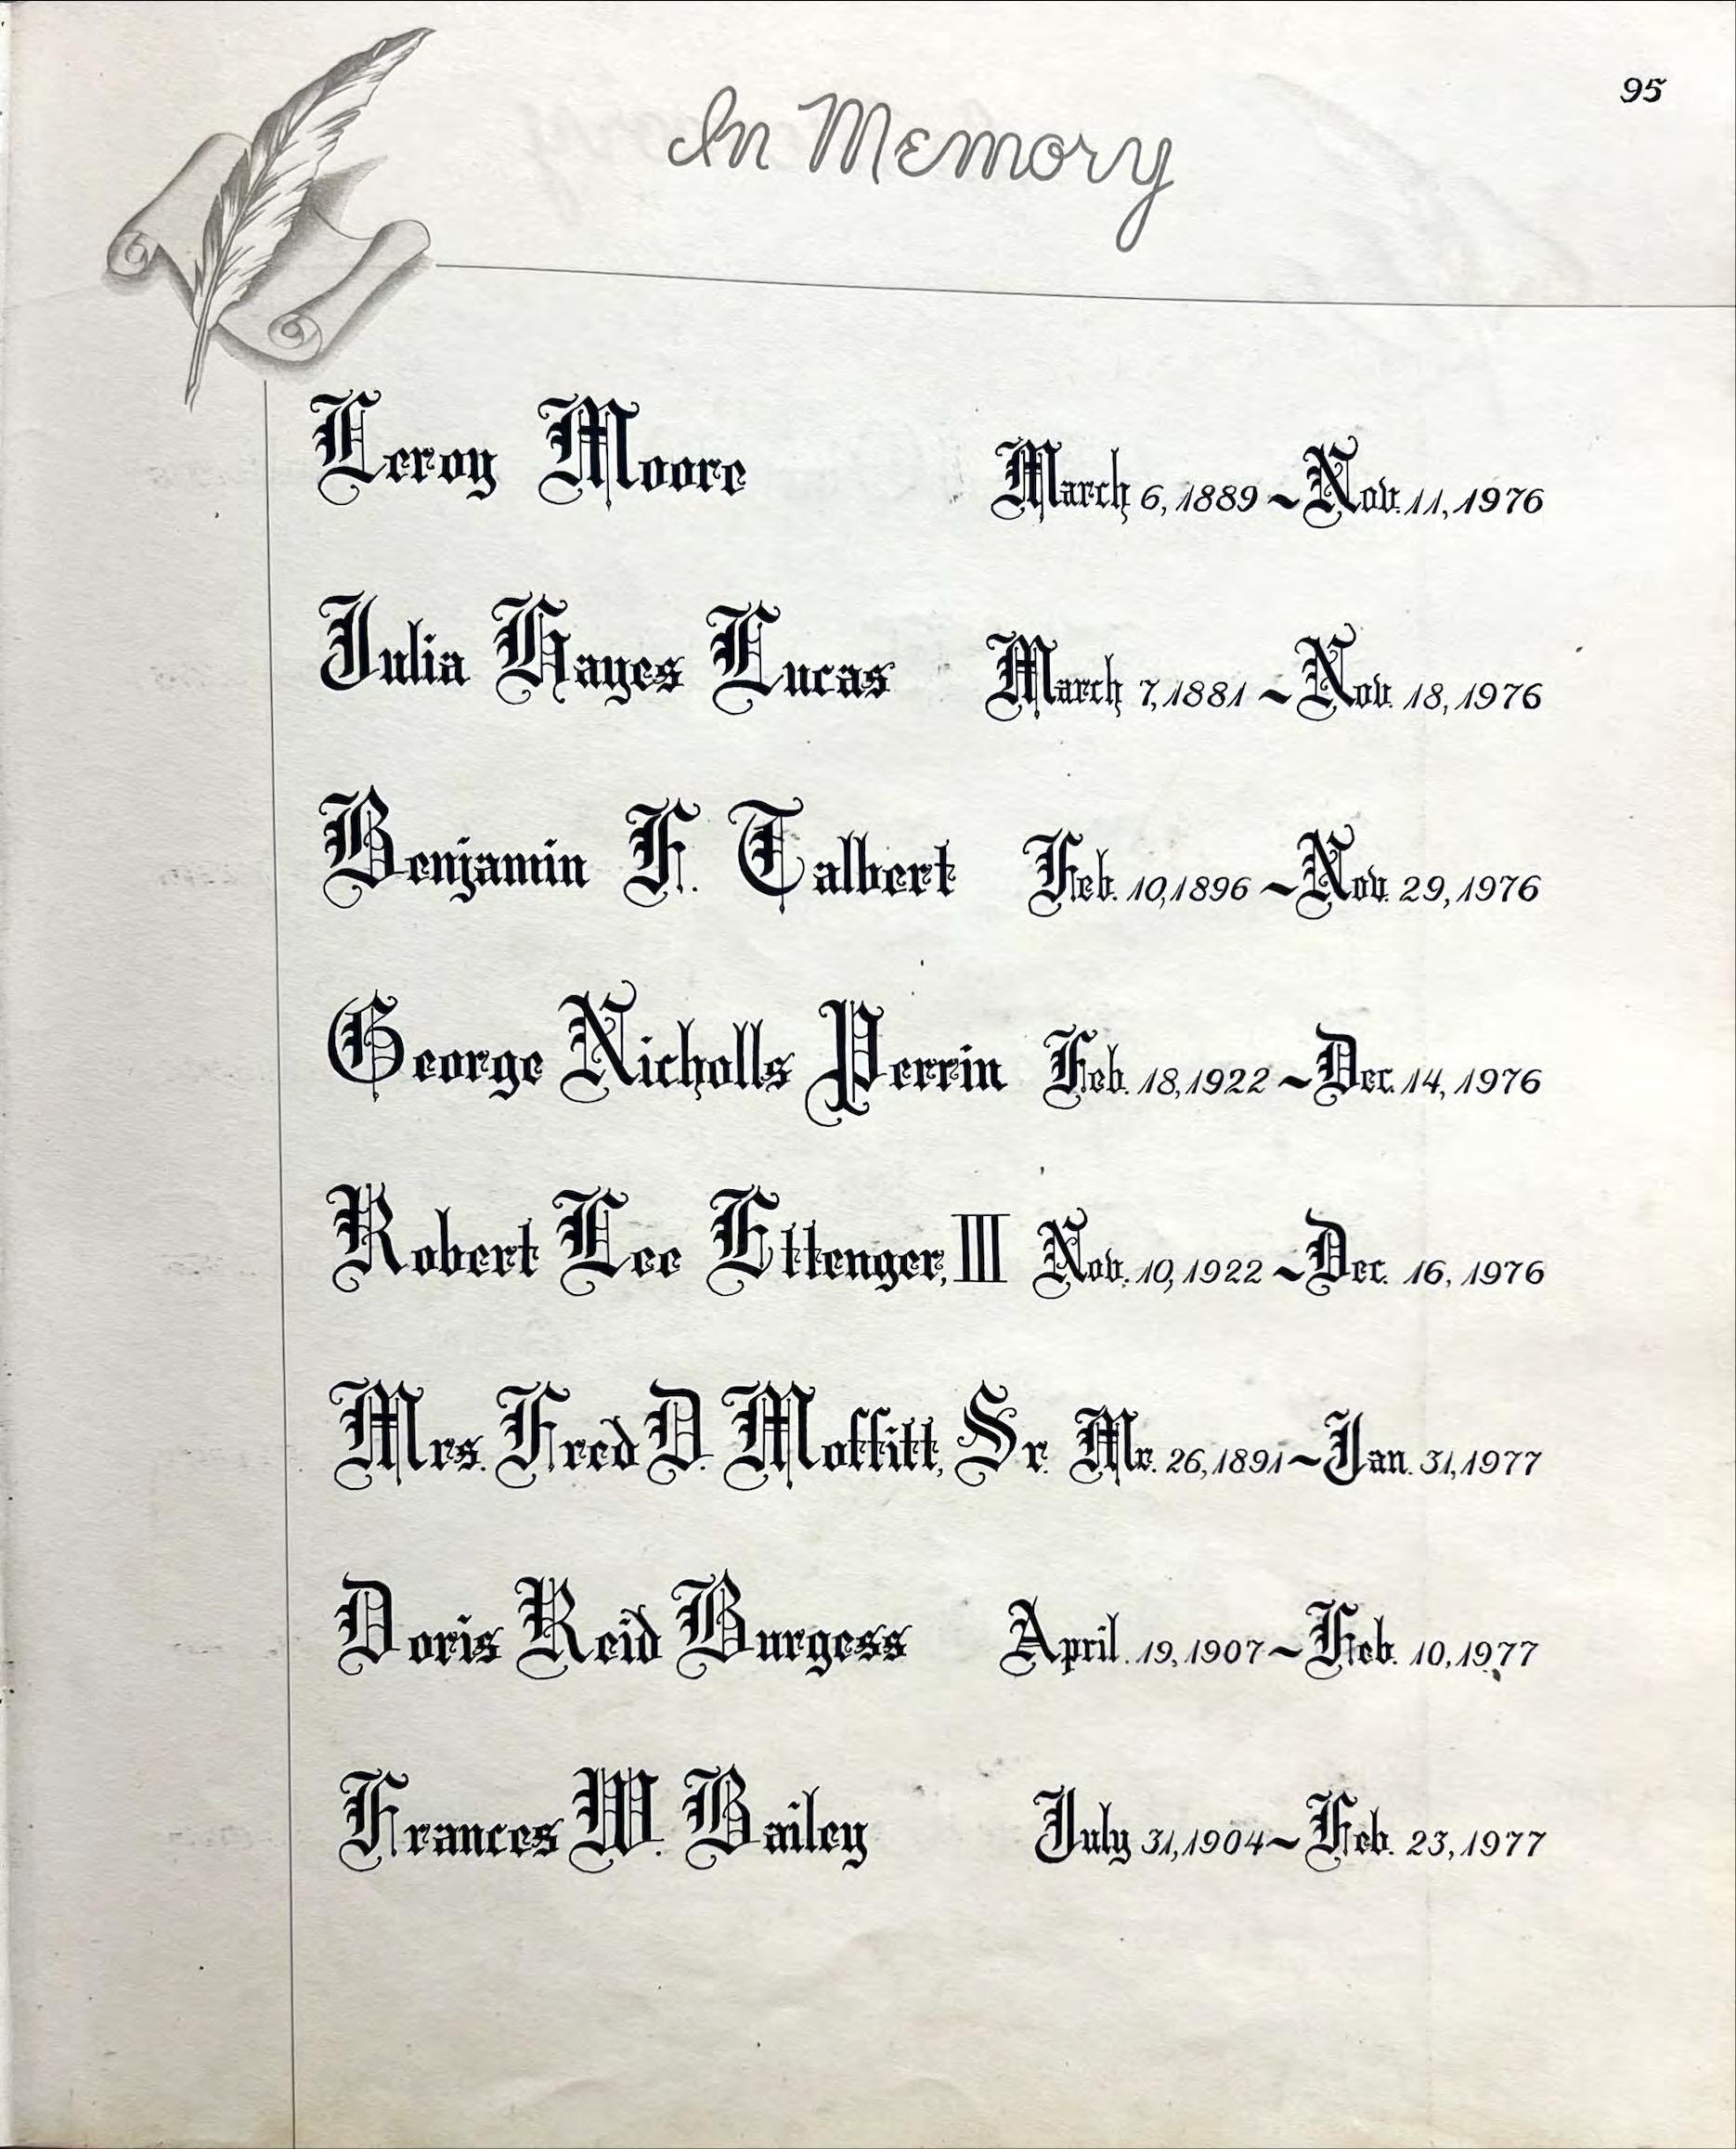 95
In Memory
Leroy Moore March 6, 1889 ~ Nov. 11, 1976
Julia Hayes Lucas March 7, 1881 ~ Nov. 18, 1976
Benjamin F. Talbert Feb. 10, 1896 ~ Nov. 29, 1976
George Nicholls Perrin Feb. 18, 1922 ~ Dec. 14, 1976
Robert Lee Ettenger, III Nov. 10, 1922 ~ Dec. 16, 1976
Mrs. Fred D. Moffitt, Sr. Mr. 26, 1891 ~ Jan. 31, 1977
Doris Reid Burgess April. 19, 1907 ~ Feb. 10, 1977
Frances W. Bailey July 31, 1904 ~ Feb. 23, 1977